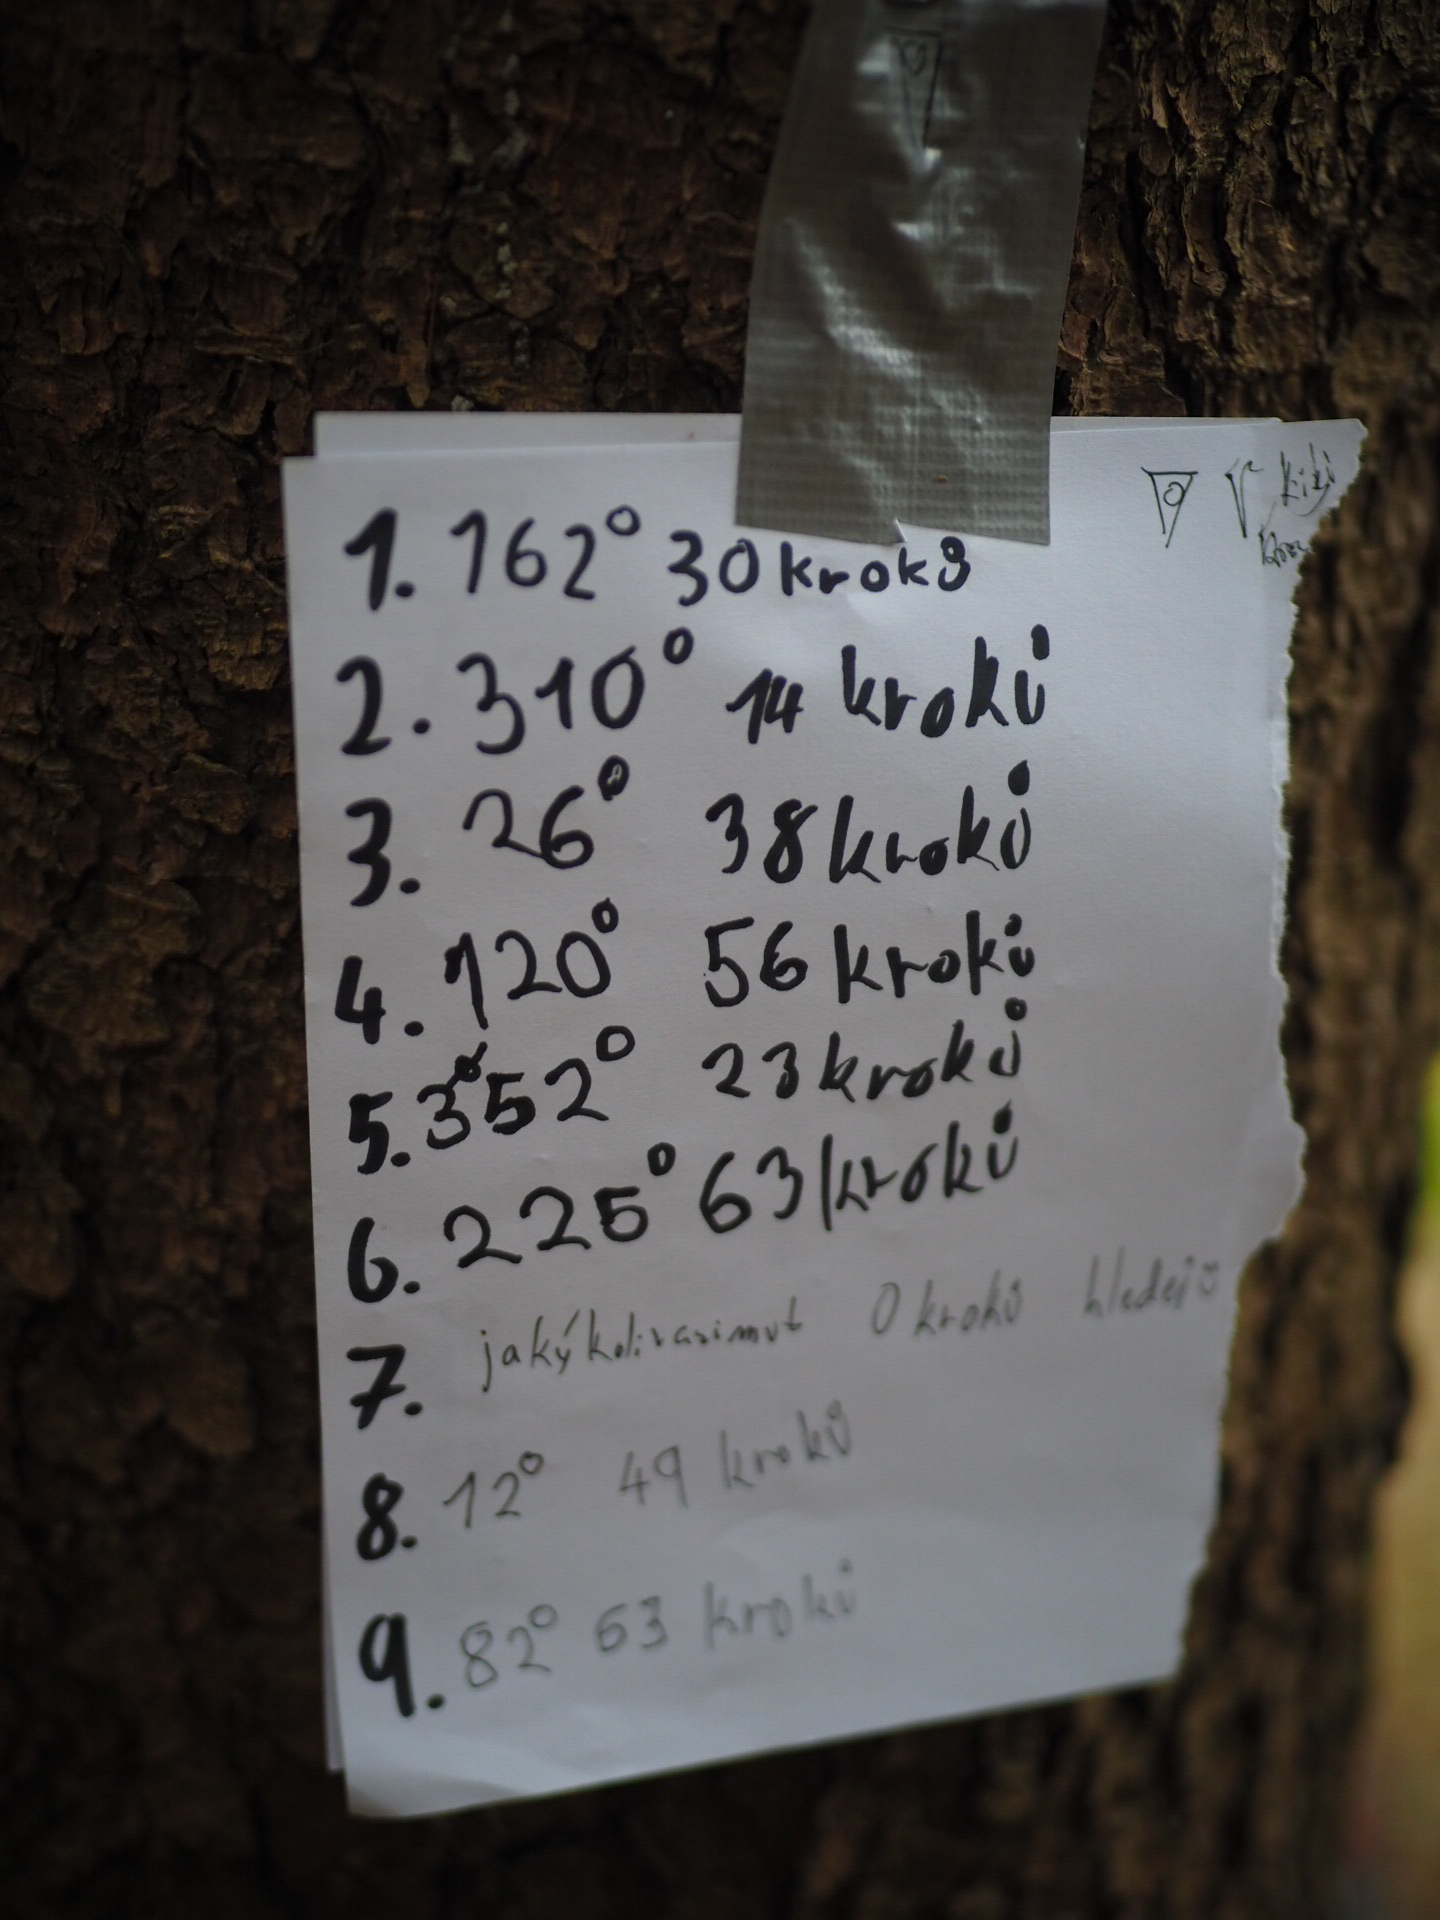 1. 162° 30 kroků
2. 310° 14 kroků
3. 26° 38 kroků
4. 120° 56 kroků
5. 352° 23 kroků
6. 225° 63 kroků
7. jakýkoliv azimut 0 kroků hledej
8. 12° 49 kroků
9. 82° 63 kroků